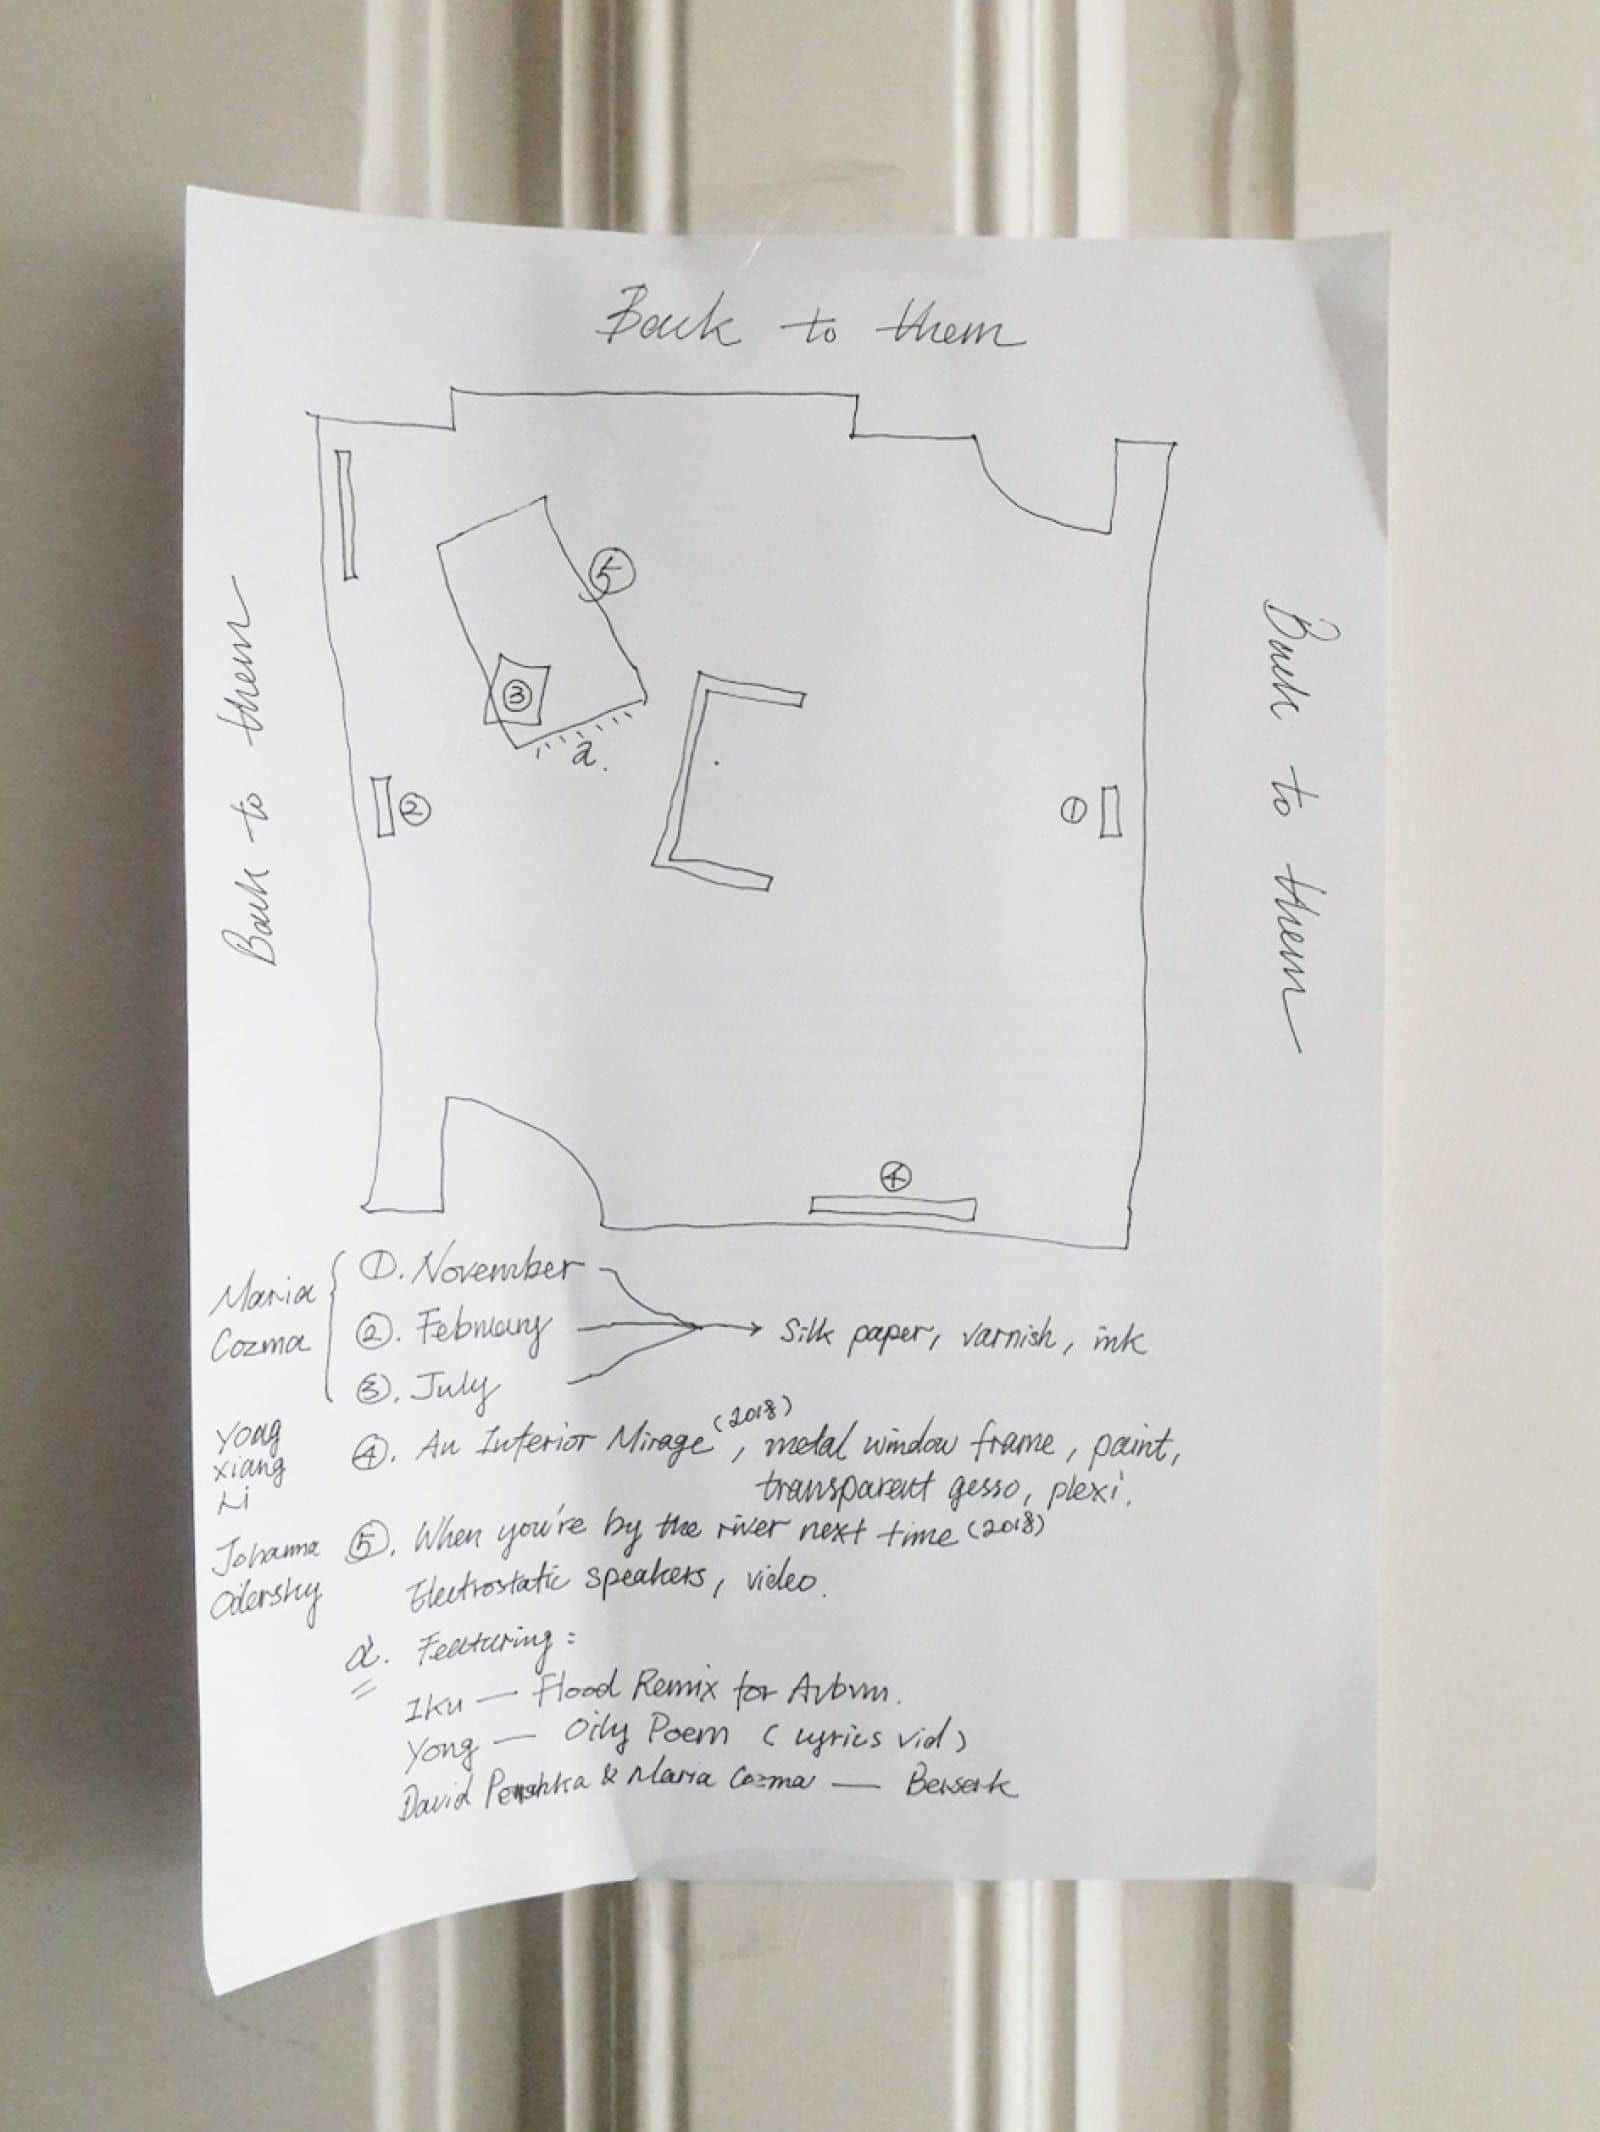 Back to them
Back to them
Back to them
⑤
③
a.
②
①
④
Maria
Cozma
①. November
②. February
③. July
Silk paper, varnish, ink
Yong
xiang
Li
④. An Inferior Mirage (2018), metal window frame, paint,
transparent gesso, plexi.
Johanna
Odersky
⑤. When you're by the river next time (2018)
Electrostatic speakers, video.
a. Featuring:
Iku — Flood Remix for
Yong — Oily Poem (Lyrics vid)
David & Maria Cozma — Berserk